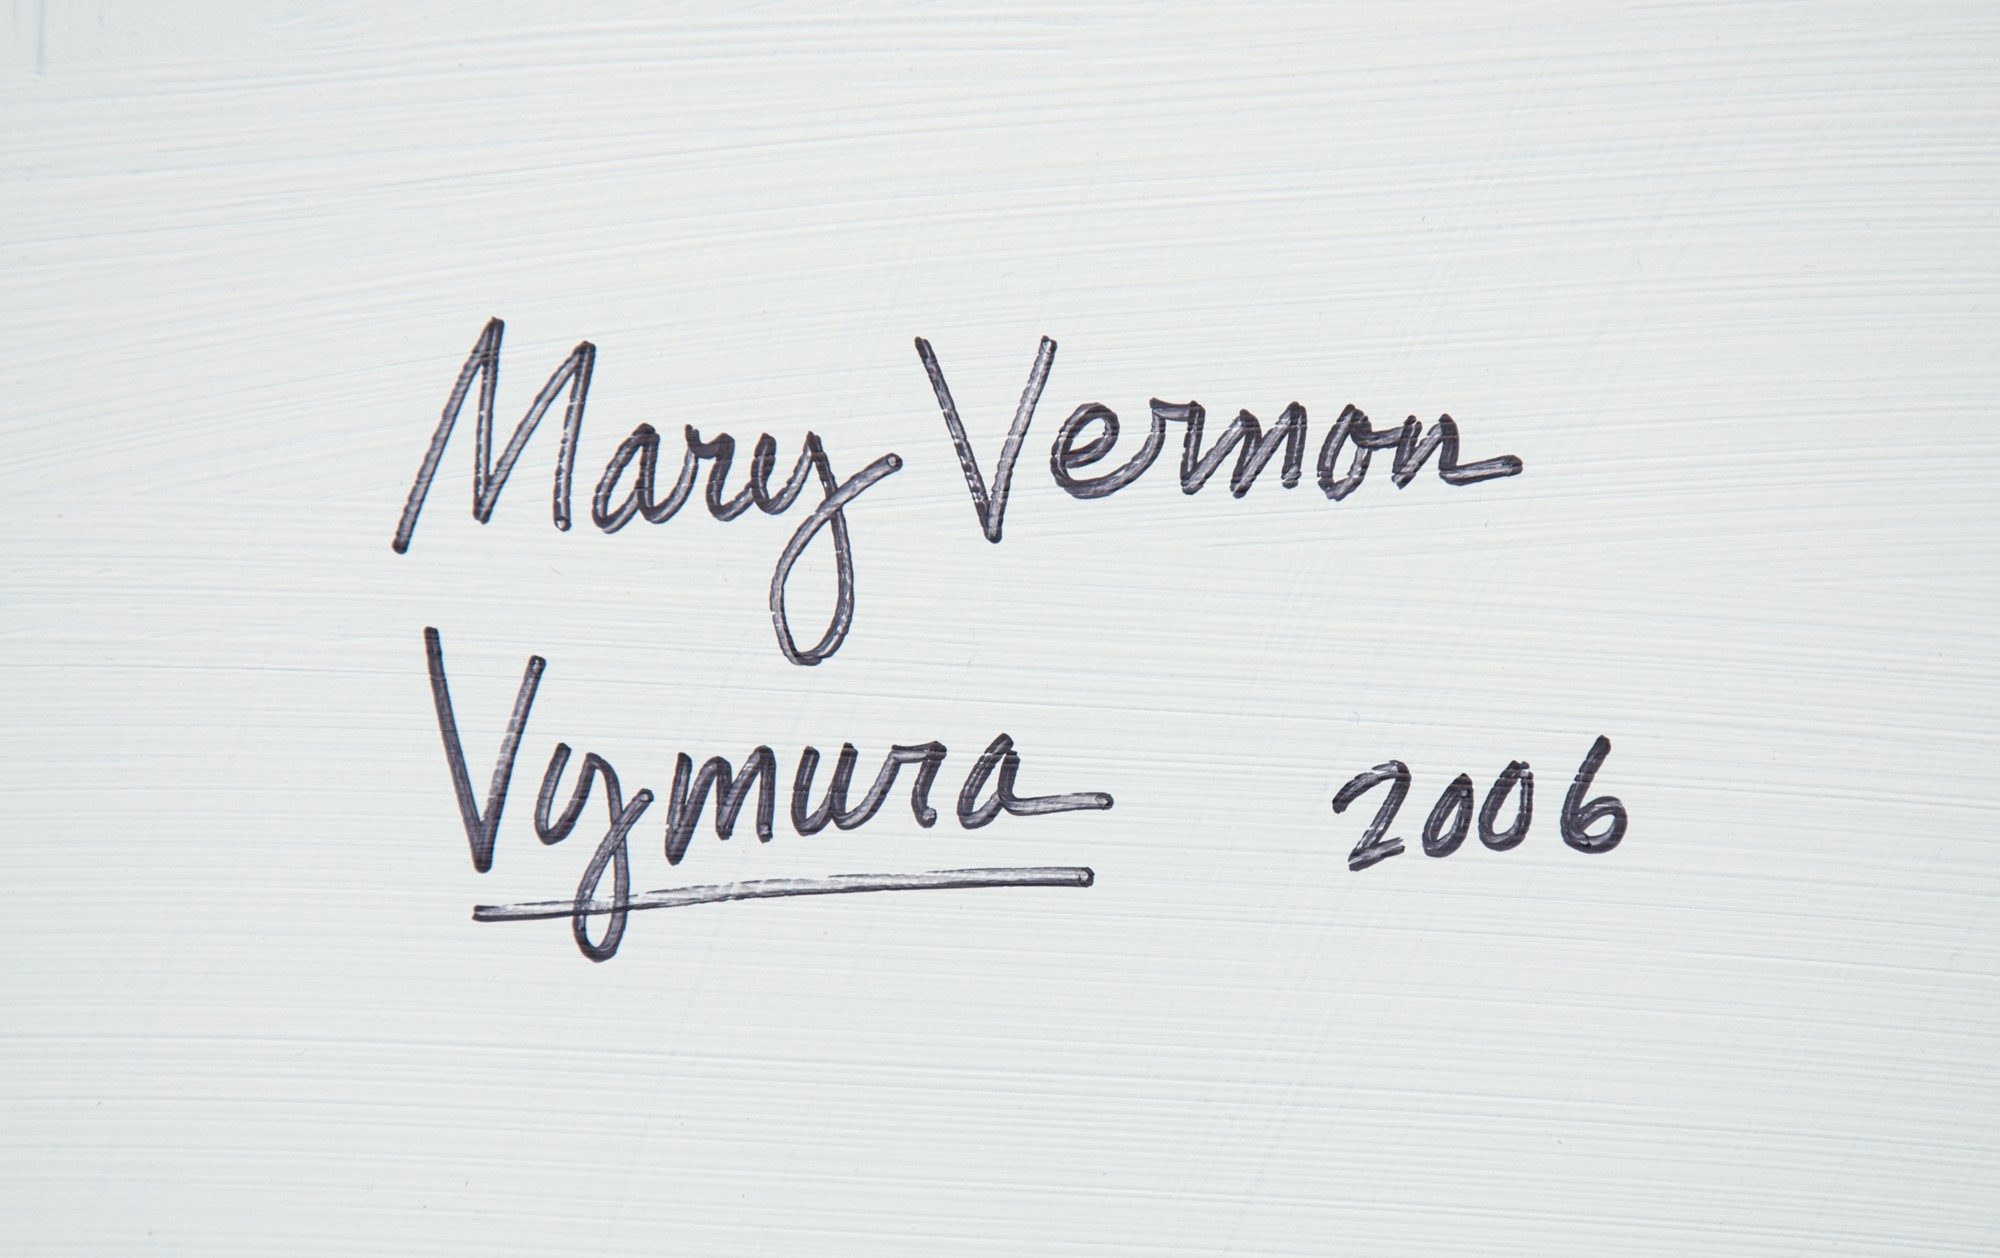 Mary Vernon
Vymura 2006